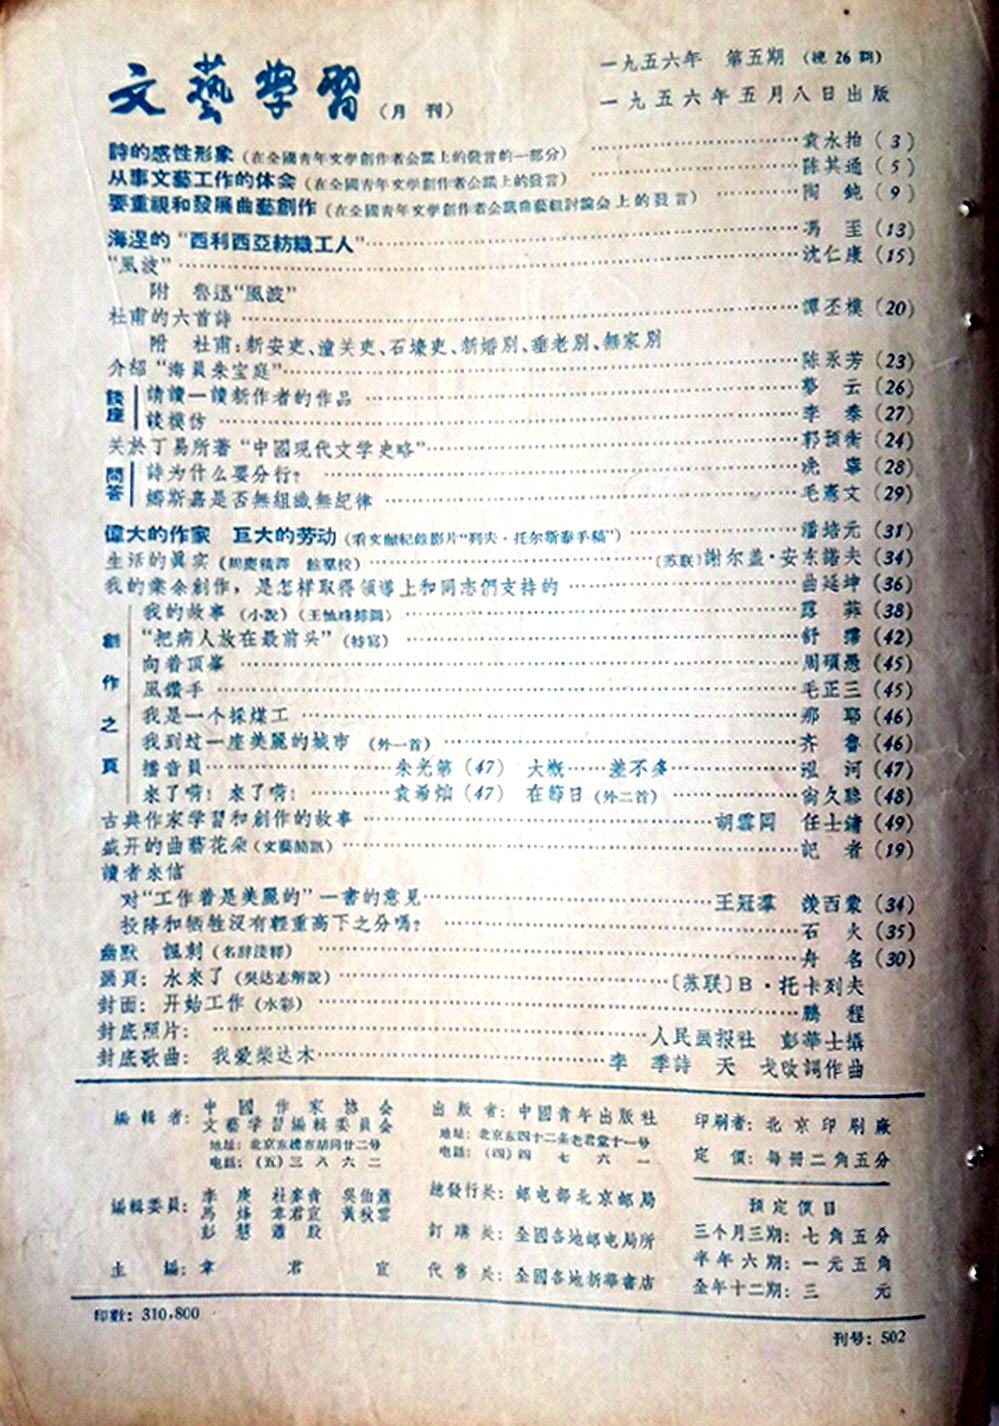 文藝學習（月刊）
一九五六年　第五期（總 26 期）
一九五六年五月八日出版
詩的感性形象（在全國青年文學創作者会議上的發言的一部分）……袁水拍（3）
从事文藝工作的体会（在全國青年文學創作者会議上的發言）……陈其通（5）
要重視和發展曲藝創作（在全國青年文學創作者会議曲藝組討論会上的發言）……陶　鈍（9）
海涅的“西利西亞紡織工人”……馮　至（13）
“風波”……沈仁康（15）
附　魯迅“風波”
杜甫的六首詩……譚丕模（20）
附　杜甫：新安吏、潼关吏、石壕吏、新婚別、垂老別、無家別
介紹“海員朱宝庭”……陈永芳（23）
談座
請讀一讀新作者的作品……　云（26）
談模仿……李　（27）
关於丁易所著“中國現代文学史略”……郭預衡（24）
問答
詩为什么要分行？……（28）
娜斯嘉是否無組織無紀律……毛憲文（29）
偉大的作家　巨大的劳动（看文献紀錄影片“列夫·托尔斯泰手稿”）……潘培元（31）
生活的眞实……〔苏联〕謝尔盖·安东諾夫（34）
我的業余創作，是怎样取得領導上和同志們支持的……曲延坤（36）
創作之頁
我的故事（小說）……（38）
“把病人放在最前头”（特寫）……舒　（42）
向着頂峯……周碩愚（45）
風鑽手……毛正三（45）
我是一个採煤工……那　耶（46）
我到过一座美麗的城市（外一首）……齐　魯（46）
播音員……朱光第（47）　大概……差不多……　河（47）
來了嗬！來了嗬！……袁希灿（47）　在節日（外二首）……（48）
古典作家学習和創作的故事……胡雲同　任士鏞（49）
盛开的曲藝花朵（文藝簡訊）……記　者（19）
讀者來信
对“工作着是美麗的”一書的意见……王冠羣　西蒙（34）
投降和牺牲沒有輕重高下之分嗎？……石　火（35）
幽默　諷刺（名辞淺釋）……舟　名（30）
画頁：水來了（吳达志解說）……〔苏联〕B·托卡列夫
封面：开始工作（水彩）……鵬　程
封底照片：……人民画报社　彭華士攝
封底歌曲：我爱柴达木……李　季詩　天　戈改詞作曲
編輯者：中國作家協会
文藝学習編輯委員会
地址：北京东總布胡同廿二号
电話：（五）三八六二
編輯委員：李　庚　杜麥青　吳伯簫
馬　烽　韋君宜　黃秋雲
彭　慧　蕭　殷
主　編：韋　君　宜
出版者：中國青年出版社
地址：北京东四十二条老君堂十一号
电話：（四）四七六一
總發行处：邮电部北京邮局
訂購处：全國各地邮电局所
代售处：全國各地新華書店
印刷者：北京印刷廠
定　價：每冊二角五分
預定價目
三个月三期：七角五分
半年六期：一元五角
全年十二期：三　元
印数：310,800
刊号：502